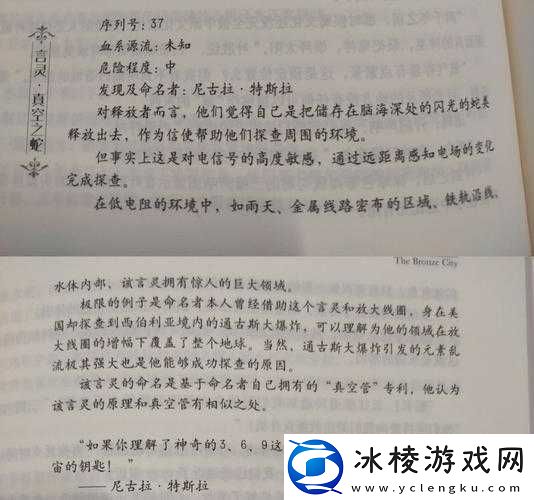 言灵·真空之蛇
序列号：37
血系源流：未知
危险程度：中
发现及命名者：尼古拉·特斯拉
对释放者而言，他们觉得自己是把储存在脑海深处的闪光的蛇类
释放出去，作为信使帮助他们探查周围的环境。
但事实上这是对电信号的高度敏感，通过远距离感知电场的变化
完成探查。
在低电阻的环境中，如雨天、金属线路密布的区域、铁轨沿线、
The Bronze City
水体内部，该言灵拥有惊人的巨大领域。
极限的例子是命名者本人曾经借助这个言灵和放大线圈，身在美
国却探查到西伯利亚境内的通古斯大爆炸，可以理解为他的领域在放
大线圈的增幅下覆盖了整个地球。当然、通古斯大爆炸引发的元素乱
流极其强大也是他能够成功探查的原因。
该言灵的命名是基于命名者自己拥有的“真空管”专利，他认为
该言灵的原理和真空管有相似之处。
“如果你理解了神奇的3、6、9这
宙的钥匙！”
——尼古拉·特斯拉
冰棱游戏网
www.yclengku.com